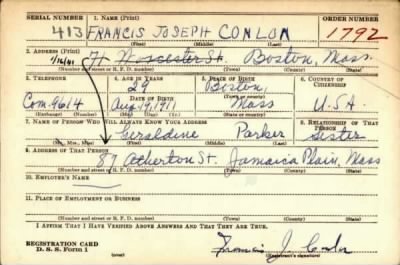 SERIAL NUMBER 1. NAME (Print) ORDER NUMBER
413 FRANCIS JOSEPH CONLON 1792
(First) (Middle) (Last)
2. ADDRESS (Print)
1/16/41 71 Worcester St. Boston, Mass.
(Number and street or R. F. D. number) (Town) (County) (State)
3. TELEPHONE 4. AGE IN YEARS 5. PLACE OF BIRTH 6. COUNTRY OF CITIZENSHIP
29 Boston,
DATE OF BIRTH
Com. 9614 Aug. 19, 1911 Mass U.S.A.
(Exchange) (Number) (Mo.) (Day) (Yr.) (State or country)
7. NAME OF PERSON WHO WILL ALWAYS KNOW YOUR ADDRESS 8. RELATIONSHIP OF THAT PERSON
Geraldine Parker Sister
(Mr., Mrs., Miss) (First) (Middle) (Last)
9. ADDRESS OF THAT PERSON
87 Atherton St. Jamaica Plain, Mass
(Number and street or R. F. D. number) (Town) (County) (State)
10. EMPLOYER'S NAME
11. PLACE OF EMPLOYMENT OR BUSINESS
(Number and street or R. F. D. number) (Town) (County) (State)
I AFFIRM THAT I HAVE VERIFIED ABOVE ANSWERS AND THAT THEY ARE TRUE.
REGISTRATION CARD
D. S. S. Form 1
Francis J. Conlon
(Registrant's signature)